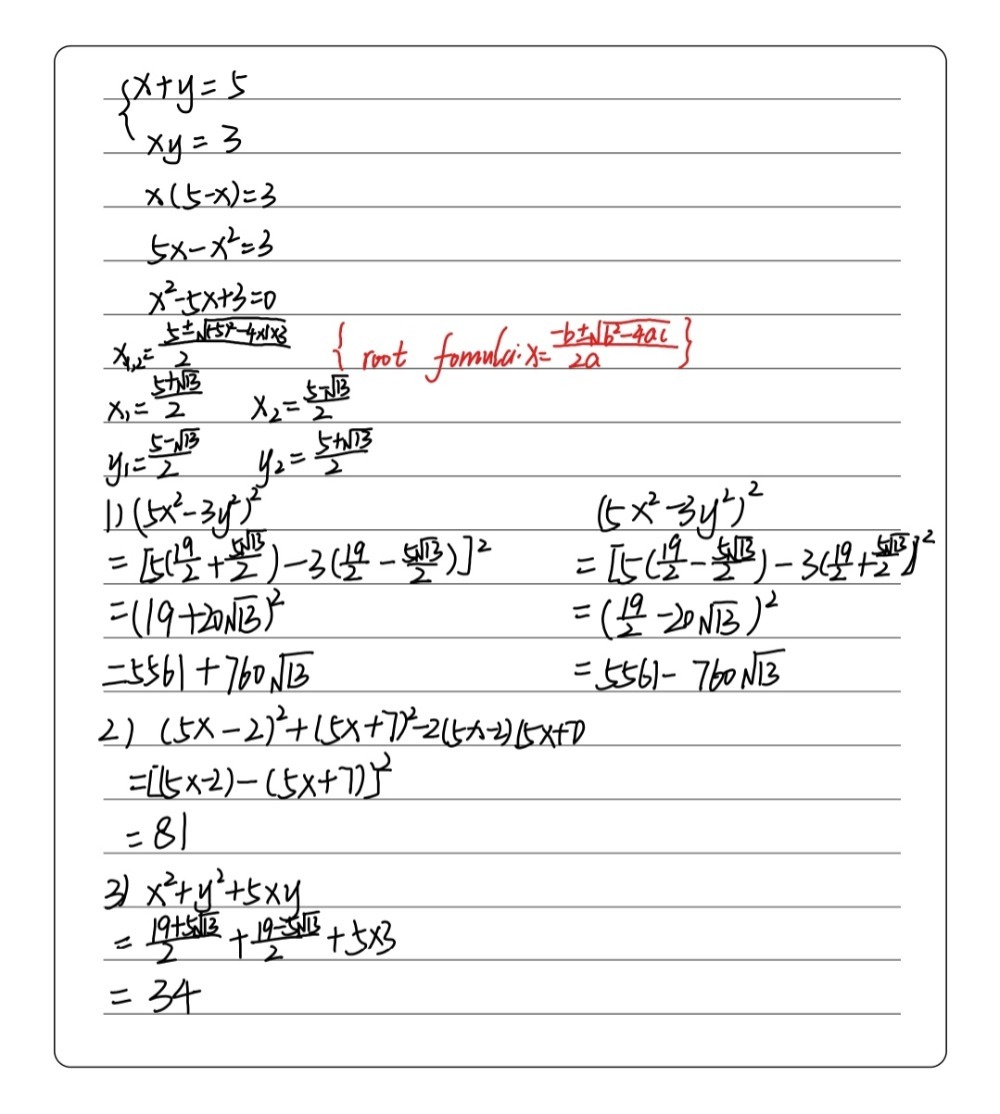 {x+y=5
xy=3
x(5-x)=3
5x-x²=3
x²-5x+3=0
x₁,₂=(5±√((-5)²-4×1×3))/2 {root fomula: x=(-b±√(b²-4ac))/(2a)}
x₁=(5+√13)/2 x₂=(5-√13)/2
y₁=(5-√13)/2 y₂=(5+√13)/2
1) (5x²-3y²)² (5x²-3y²)²
=[5(19/2+5√13/2)-3(19/2-5√13/2)]² =[5(19/2-5√13/2)-3(19/2+5√13/2)]²
=(19+20√13)² =(19/2-20√13)²
=5561+760√13 =5561-760√13
2) (5x-2)²+(5x+7)²-2(5x-2)(5x+7)
=[(5x-2)-(5x+7)]²
=81
3) x²+y²+5xy
=(19+5√13)/2+(19-5√13)/2+5×3
=34